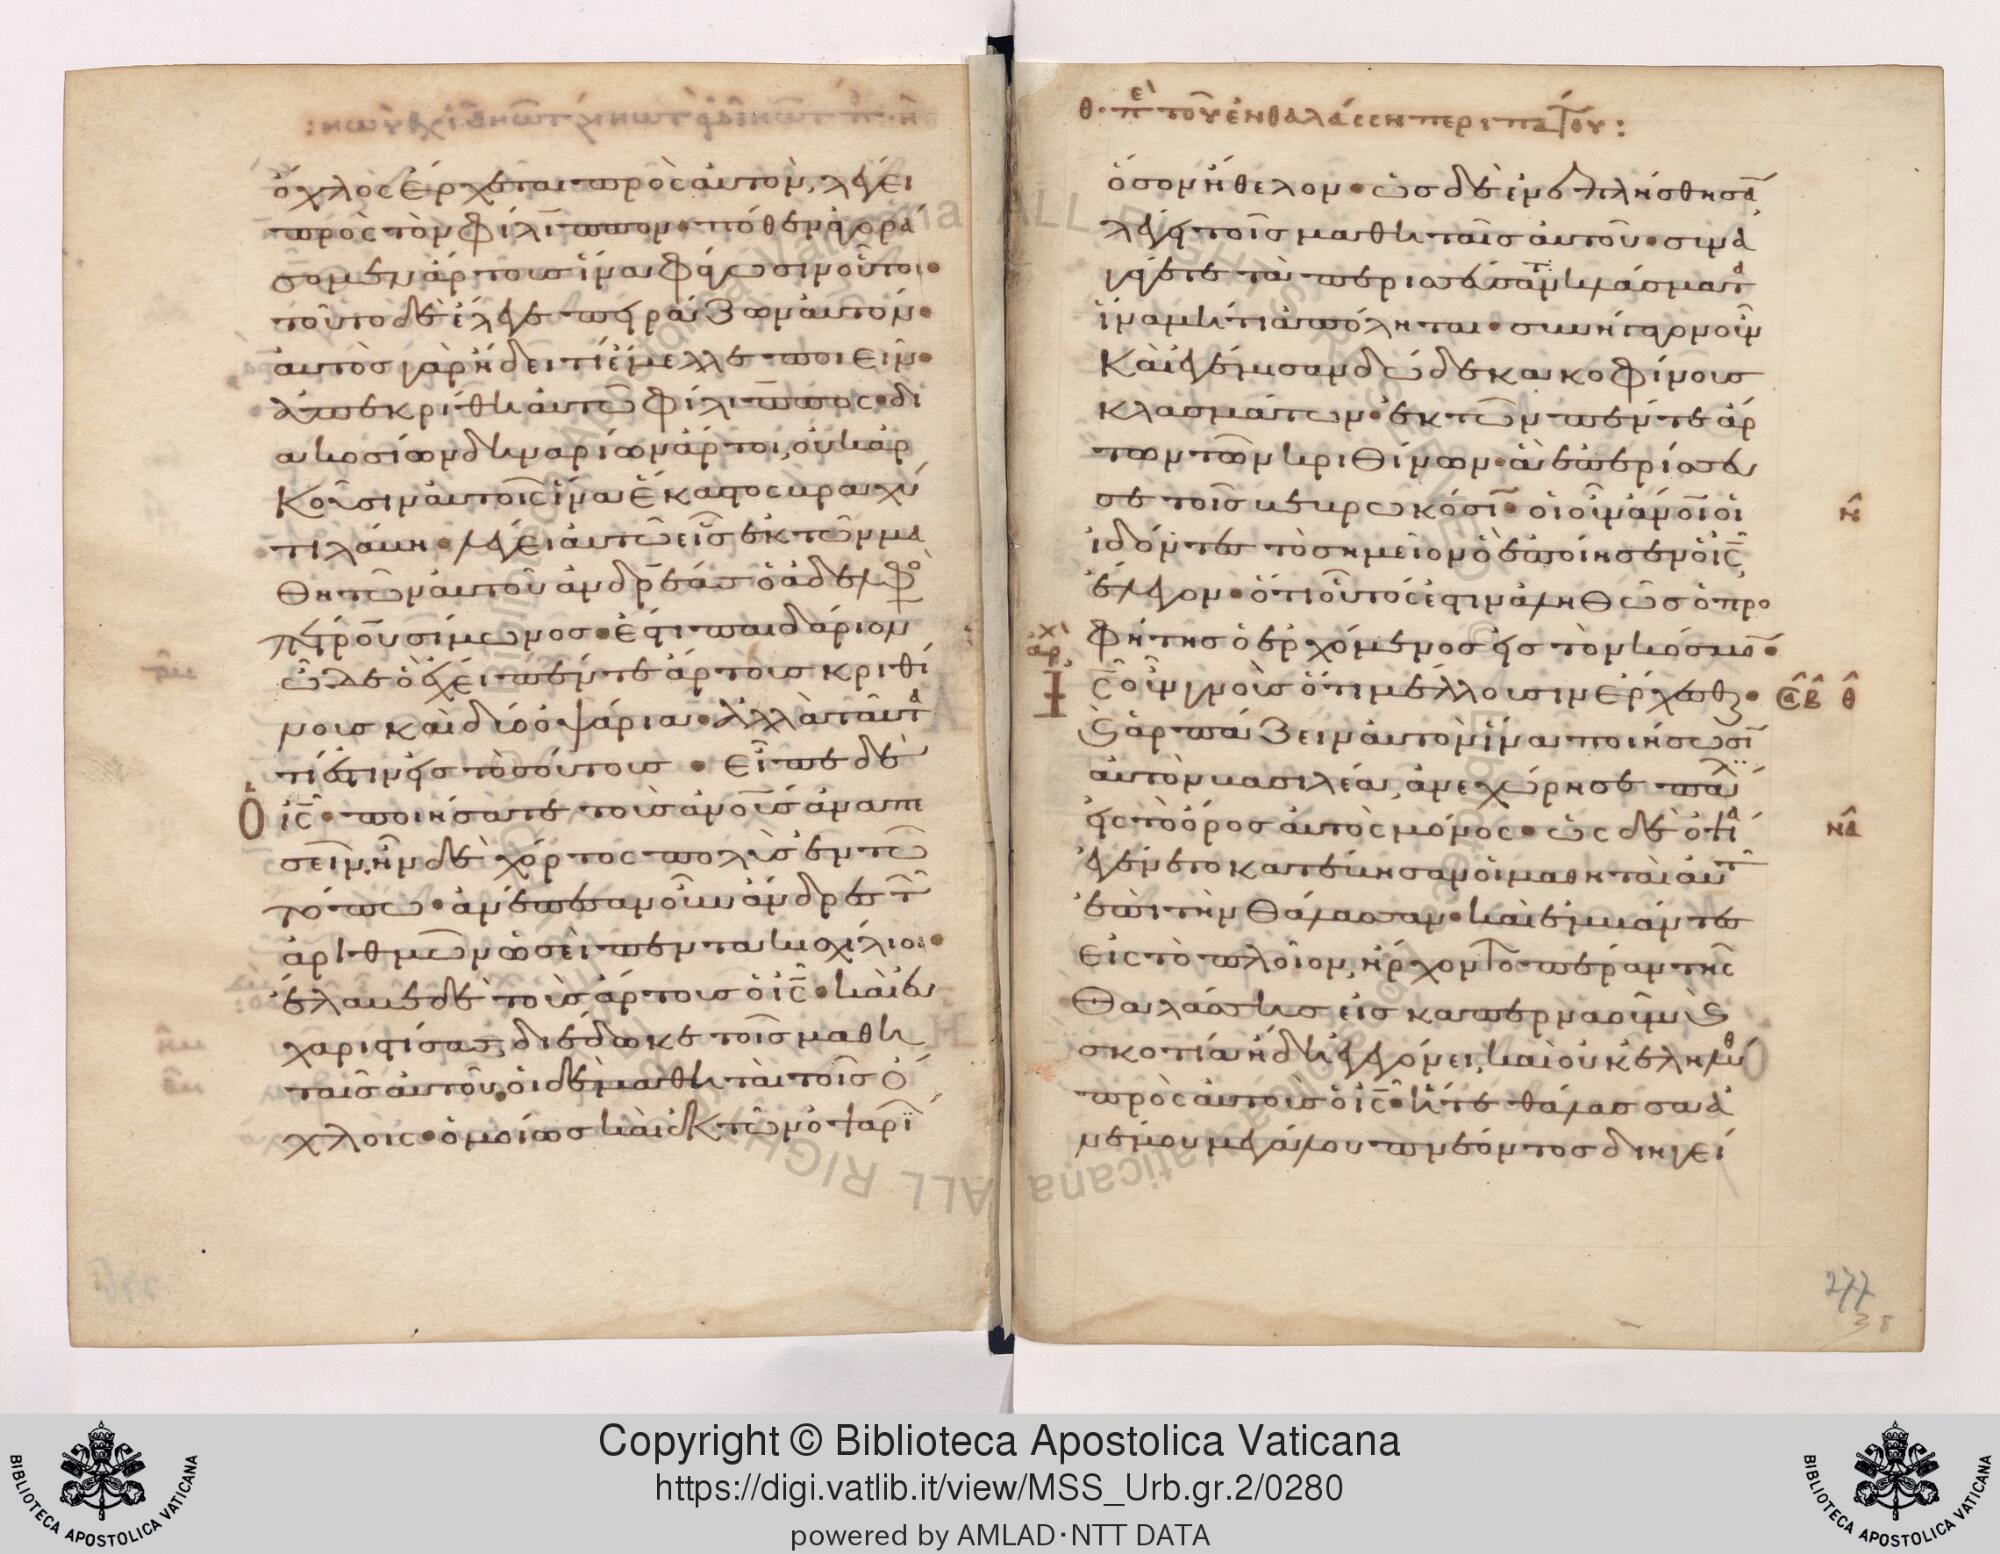 ὄχλος ἔρχεται πρὸς αὐτὸν, λέγει
πρὸς τὸν φίλιππον· πόθεν ἀγορά
σομεν ἄρτους ἵνα φάγωσιν οὗτοι·
τοῦτο δὲ ἔλεγε πειράζων αὐτόν·
αὐτὸς γὰρ ἤδει τί ἔμελλε ποιεῖν·
ἀπεκρίθη αὐτῶ φίλιππος· δι
ακοσίων δηναρίων ἄρτοι, οὐκ ἀρ
κοῦσιν αὐτοῖς ἵνα ἕκαστος βραχύ
τι λάβη· λέγει αὐτῶ εἷς ἐκ τῶν μα
θητῶν αὐτοῦ ἀνδρέας ὁ ἀδελφὸ
πέτρου σίμωνος· ἔστι παιδάριον
ὧδε ὃ ἔχει πέντε ἄρτους κριθί
νους καὶ δύο ὀψάρια· ἀλλὰ ταῦτα
τί ἐστιν εἰς τοσούτους· εἶπε δὲ
Ὁ ις· ποιήσατε τοὺς ἀνους ἀναπε
σεῖν, ἦν δὲ χόρτος πολὺς ἐν τῶ
τόπω· ἀνέπεσαν οὖν ἄνδρες τὸν
ἀριθμὸν ὡσεὶ πεντακισχίλιοι·
ἔλαβε δὲ τοὺς ἄρτους ὁ ις· καὶ εὐ
χαριστίσας, διέδωκε τοῖς μαθη
ταῖς αὐτοῦ, οἱ δὲ μαθηταὶ τοῖς ὄ
χλοις· ὁμοίως καὶ ἐκ τῶν ὀψαρί
θ· πε τοῦ ἐν θαλάσση περιπάτου:
ὅσον ἤθελον· ὡς δὲ ἐνεπλήσθησαν,
λέγει τοῖς μαθηταῖς αὐτοῦ· συνα
γάγετε τὰ περισσεύσαντα κλάσματα
ἵνα μή τι ἀπόληται· συνήγαγον οὖν
καὶ ἐγέμισαν δώδεκα κοφίνους
κλασμάτων· ἐκ τῶν πέντε ἄρ
των τῶν κριθίνων· ἃ ἐπερίσσευ
σε τοῖς βεβρωκόσι· οἱ οὖν ανοι οἱ
ν
ἰδόντες τὸ σημεῖον ὃ ἐποίησεν ὁ ις,
ἔλεγον· ὅτι οὗτός ἐστιν ἀληθῶς ὁ προ
φήτης ὁ ἐρχόμενος εἰς τὸν κόσμον·
αρχ
Ις οὖν γνοὺς ὅτι μέλλουσιν ἔρχεσθαι·
θ
καὶ ἁρπάζειν αὐτὸν ἵνα ποιήσωσι
αὐτὸν βασιλέα, ἀνεχώρησε πάλιν
εἰς τὸ ὄρος αὐτὸς μόνος· ὡς δὲ ὀψία
να
ἐγένετο κατέβησαν οἱ μαθηταὶ αὐτοῦ
ἐπὶ τὴν θάλασσαν· καὶ ἐμβάντες
εἰς τὸ πλοῖον, ἤρχοντο πέραν τῆς
θαλάσσης εἰς καπερναοὺμ καὶ
σκοτία ἤδη ἐγεγόνει, καὶ οὐκ ἐληλύθ
πρὸς αὐτοὺς ὁ ις· ἥ τε θάλασσα ἀ
νέμου μεγάλου πνέοντος διηγεί
277
38
Copyright © Biblioteca Apostolica Vaticana
https://digi.vatlib.it/view/MSS_Urb.gr.2/0280
powered by AMLAD·NTT DATA
BIBLIOTECA APOSTOLICA VATICANA
BIBLIOTECA APOSTOLICA VATICANA